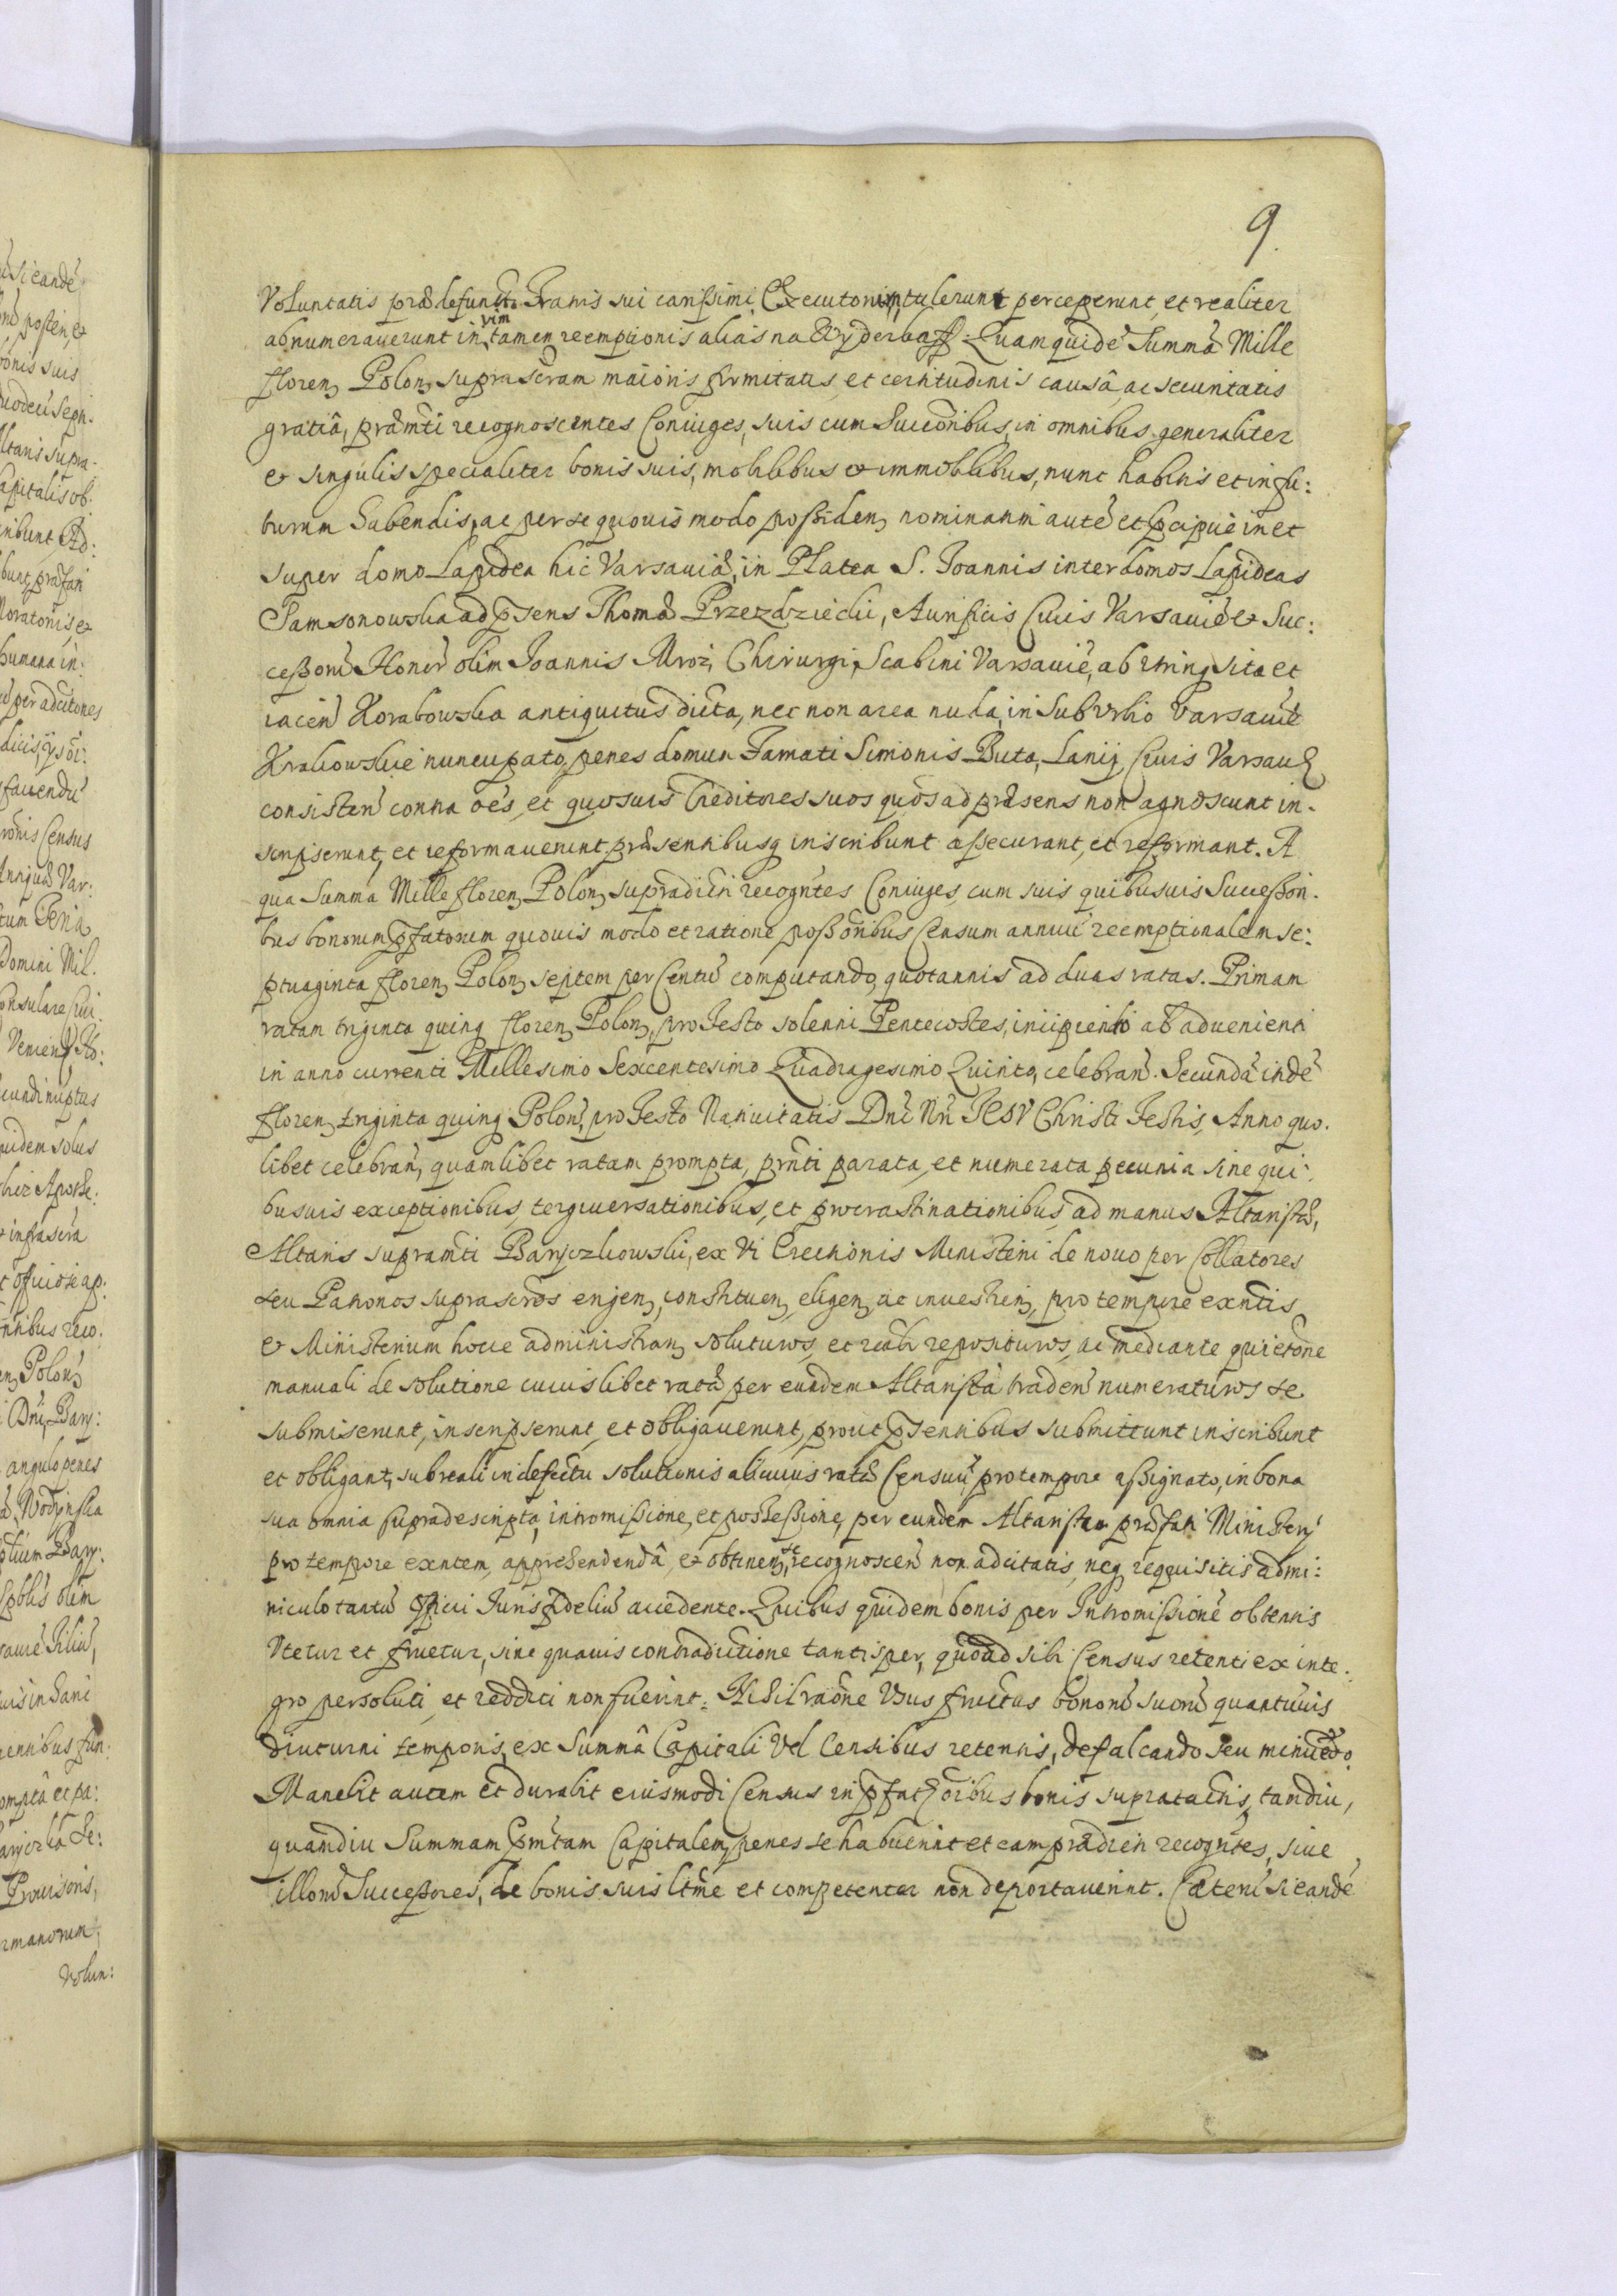 9.
Voluntatis præ defuncti Fratris sui carissimi, Executorum, tulerunt perceperunt, et realiter
adnumeraverunt in vim tamen reemptionis alias na Wyderkaff. Quam quidē Summā Mille
floren Polon suprascram maioris firmitatis, et certitudinis causâ, ac securitatis
gratiâ, præmti recognoscentes Coniuges, suis cum Succoribus, in omnibus generaliter
et singulis specialiter bonis suis, mobilibus et immobilibus, nunc habitis et in fu:
turum habendis, ac per se quovis modo possiden nominatim autē et pcipuè in et
super domo Lapidea hic Varsaviæ, in Platea S. Joannis inter domos Lapideas
Samsonowska ad psens Thomæ Przezdziecki, Aurificis Civis Varsaviē et Suc:
cessorū Honer olim Joannis Mroz, Chirurgi, Scabini Varsaviē, ab utrinq sita et
iacen Korabowska antiquitus dicta, nec non area nuda, in Suburbio Varsaviē
Krakowskie nuncupato, penes domum Famati Simonis Buta, Lanij, Civis Varsavē
consisten contra oēs, et quosuis Creditores suos quos ad præsens non agnoscunt in-
scripserunt, et reformaverunt, præsentibusq inscribunt assecurant, et reformant. A
qua Summa Mille floren Polon supradicti recogntes Coniuges, cum suis quibusuis Successori-
bus bonorum pfatorum quovis modo et ratione possoribus Censum annuū reemptionalem se:
ptuaginta floren Polon septem per Centū computando, quotannis ad duas ratas. Primam
ratam triginta quinq floren Polon, pro Festo solenni Pentecostes, incipiendo ab advenienti
in anno currenti Millesimo Sexcentesimo Quadragesimo Quinto, celebran. Secundā indē
floren triginta quinq Polon, pro Festo Nativitatis Dni Nri JESV Christi Festis, Anno quo-
libet celebran, quamlibet ratam prompta, prnti parata, et numerata pecunia sine qui:
busuis exceptionibus, tergiversationibus, et procrastinationibus, ad manus Altaristæ,
Altaris supramti Baryczkowski, ex Vi Erectionis Ministerii de novo per Collatores
seu Patronos suprascros erigen, constituen, eligen, ac investien, pro tempore exntis
et Ministerium hocce administran, soluturos, et realr reposituros, ac mediante quietone
manuali de solutione cuiuslibet ratæ per eundem Altaristā traden numeraturos se
submiserunt, inscripserunt, et obligaverunt, prout psentibus submittunt inscribunt
et obligant, sub reali in defectu solutionis alicuius ratæ Censuū, pro tempore assignato, in bona
sua omnia supradescripta, intromissione, et possessione, per eundem Altaristam præfati Ministerij
pro tempore exntem, apprehendendâ, et obtinen, se recognoscen non adcitatis, neq requisitis admi:
niculo tantū Officii Juris fidelium accedente. Quibus quidem bonis per Intromissionē obtentis
Utetur et fruetur, sine quavis contradictione tantisper, quoad sibi Census retenti ex inte:
gro persoluti, et redditi non fuerint. Nihil raōne Usus fructus bonorū suorū quantūvis
diuturni temporis, ex Summâ Capitali Vel Censibus retentis, defalcando seu minuēdo.
Manebit autem et durabit eiusmodi Census in pfat oribus bonis supratactis, tandiu,
quamdiu Summam pmtam Capitalem, penes se habuerint et eam prædicti recogntes, sive
illorū Successores, de bonis suis ltme et competenter non deportaverint. Cæterū si eandē